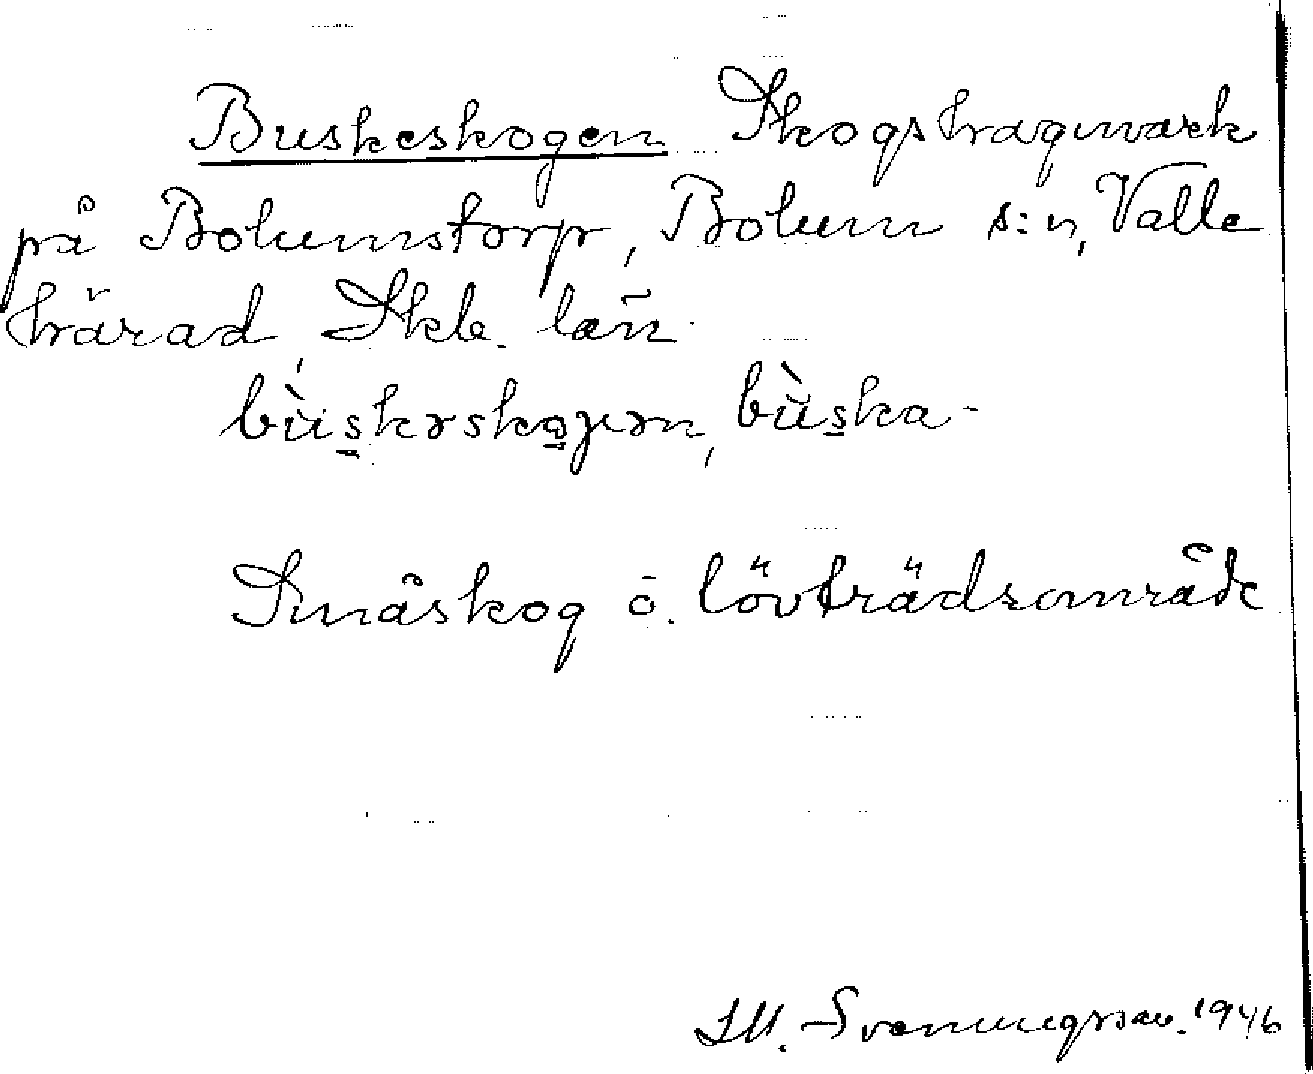 Buskeskogen Skogshagmark
på Bolumstorp, Bolum s:n, Valle
härad, Skb. län
bùskəskoɡən, bùska-
Småskog o. lövträdsområde
Svenningsson. 1946